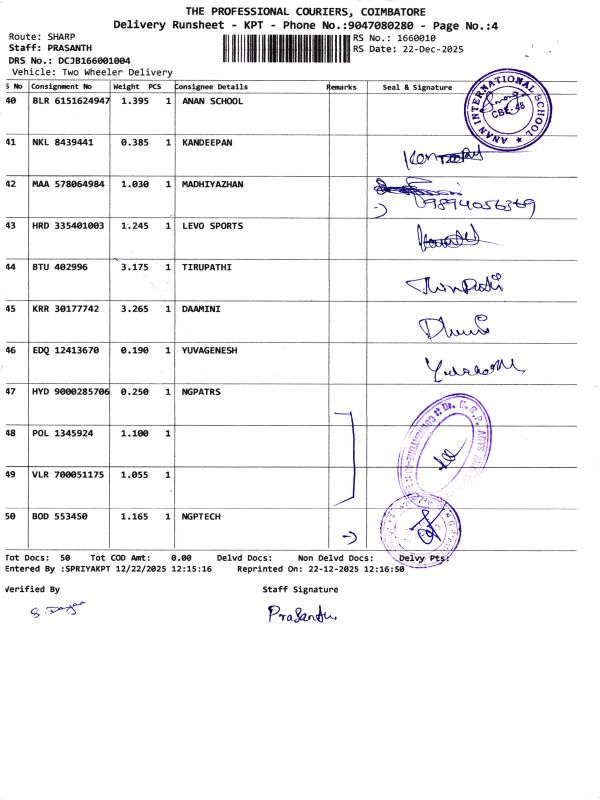 THE PROFESSIONAL COURIERS, COIMBATORE
Delivery Runsheet - KPT - Phone No.:9047080280 - Page No.:4
Route: SHARP RS No.: 1660010
Staff: PRASANTH RS Date: 22-Dec-2025
DRS No.: DCJB166001004
Vehicle: Two Wheeler Delivery
S No Consignment No Weight PCS Consignee Details Remarks Seal & Signature
40 BLR 6151624947 1.395 1 ANAN SCHOOL
ANAN INTERNATIONAL SCHOOL
CBE-48
41 NKL 8439441 0.385 1 KANDEEPAN
42 MAA 578064984 1.030 1 MADHIYAZHAN
9894056369
43 HRD 335401003 1.245 1 LEVO SPORTS
44 BTU 402996 3.175 1 TIRUPATHI
45 KRR 30177742 3.265 1 DAAMINI
46 EDQ 12413670 0.190 1 YUVAGENESH
47 HYD 9000285706 0.250 1 NGPATRS
Dr. N.G.P. ARTS
48 POL 1345924 1.100 1
49 VLR 700051175 1.055 1
50 BOD 553450 1.165 1 NGPTECH
Tot Docs: 50 Tot COD Amt: 0.00 Delvd Docs: Non Delvd Docs: Delvy Pts:
Entered By :SPRIYAKPT 12/22/2025 12:15:16 Reprinted On: 22-12-2025 12:16:50
Verified By Staff Signature
Prasanth